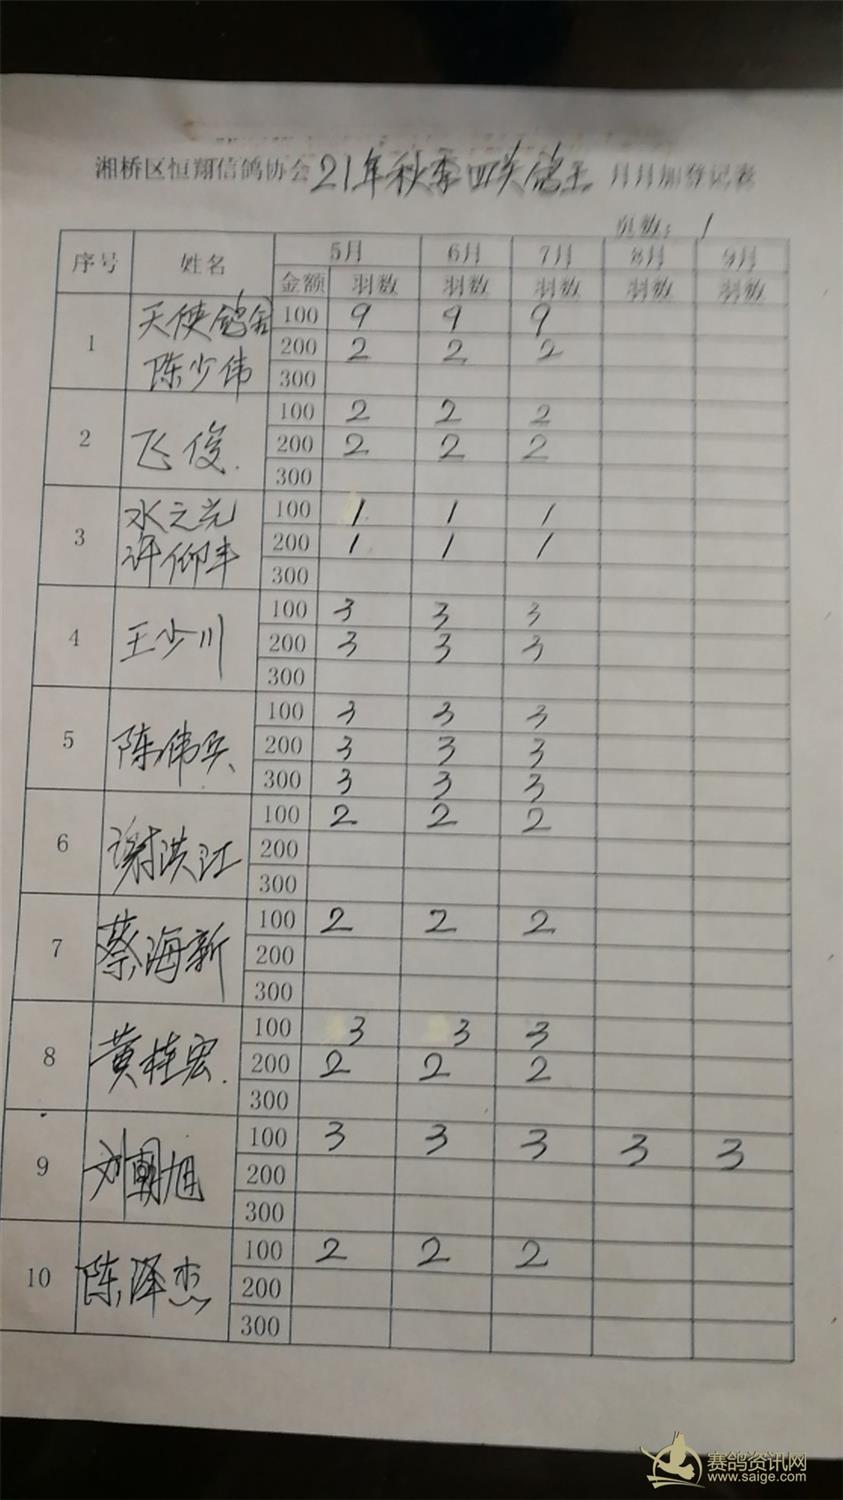 湘桥区恒翔信鸽协会21年秋季四关鸽王 月月加登记表
页数: 1
序号 姓名 5月 6月 7月 8月 9月
金额 羽数 羽数 羽数 羽数 羽数
1 天使鸽舍 陈少伟 100 9 9 9
200 2 2 2
300
2 飞俊. 100 2 2 2
200 2 2 2
300
3 水之光 许仰丰 100 1 1 1
200 1 1 1
300
4 王少川 100 3 3 3
200 3 3 3
300
5 陈伟兵 100 3 3 3
200 3 3 3
300 3 3 3
6 谢洪江 100 2 2 2
200
300
7 蔡海新 100 2 2 2
200
300
8 黄桂宏. 100 3 3 3
200 2 2 2
300
9 刘朝旭 100 3 3 3 3 3
200
300
10 陈泽杰 100 2 2 2
200
300
赛鸽资讯网
www.saige.com